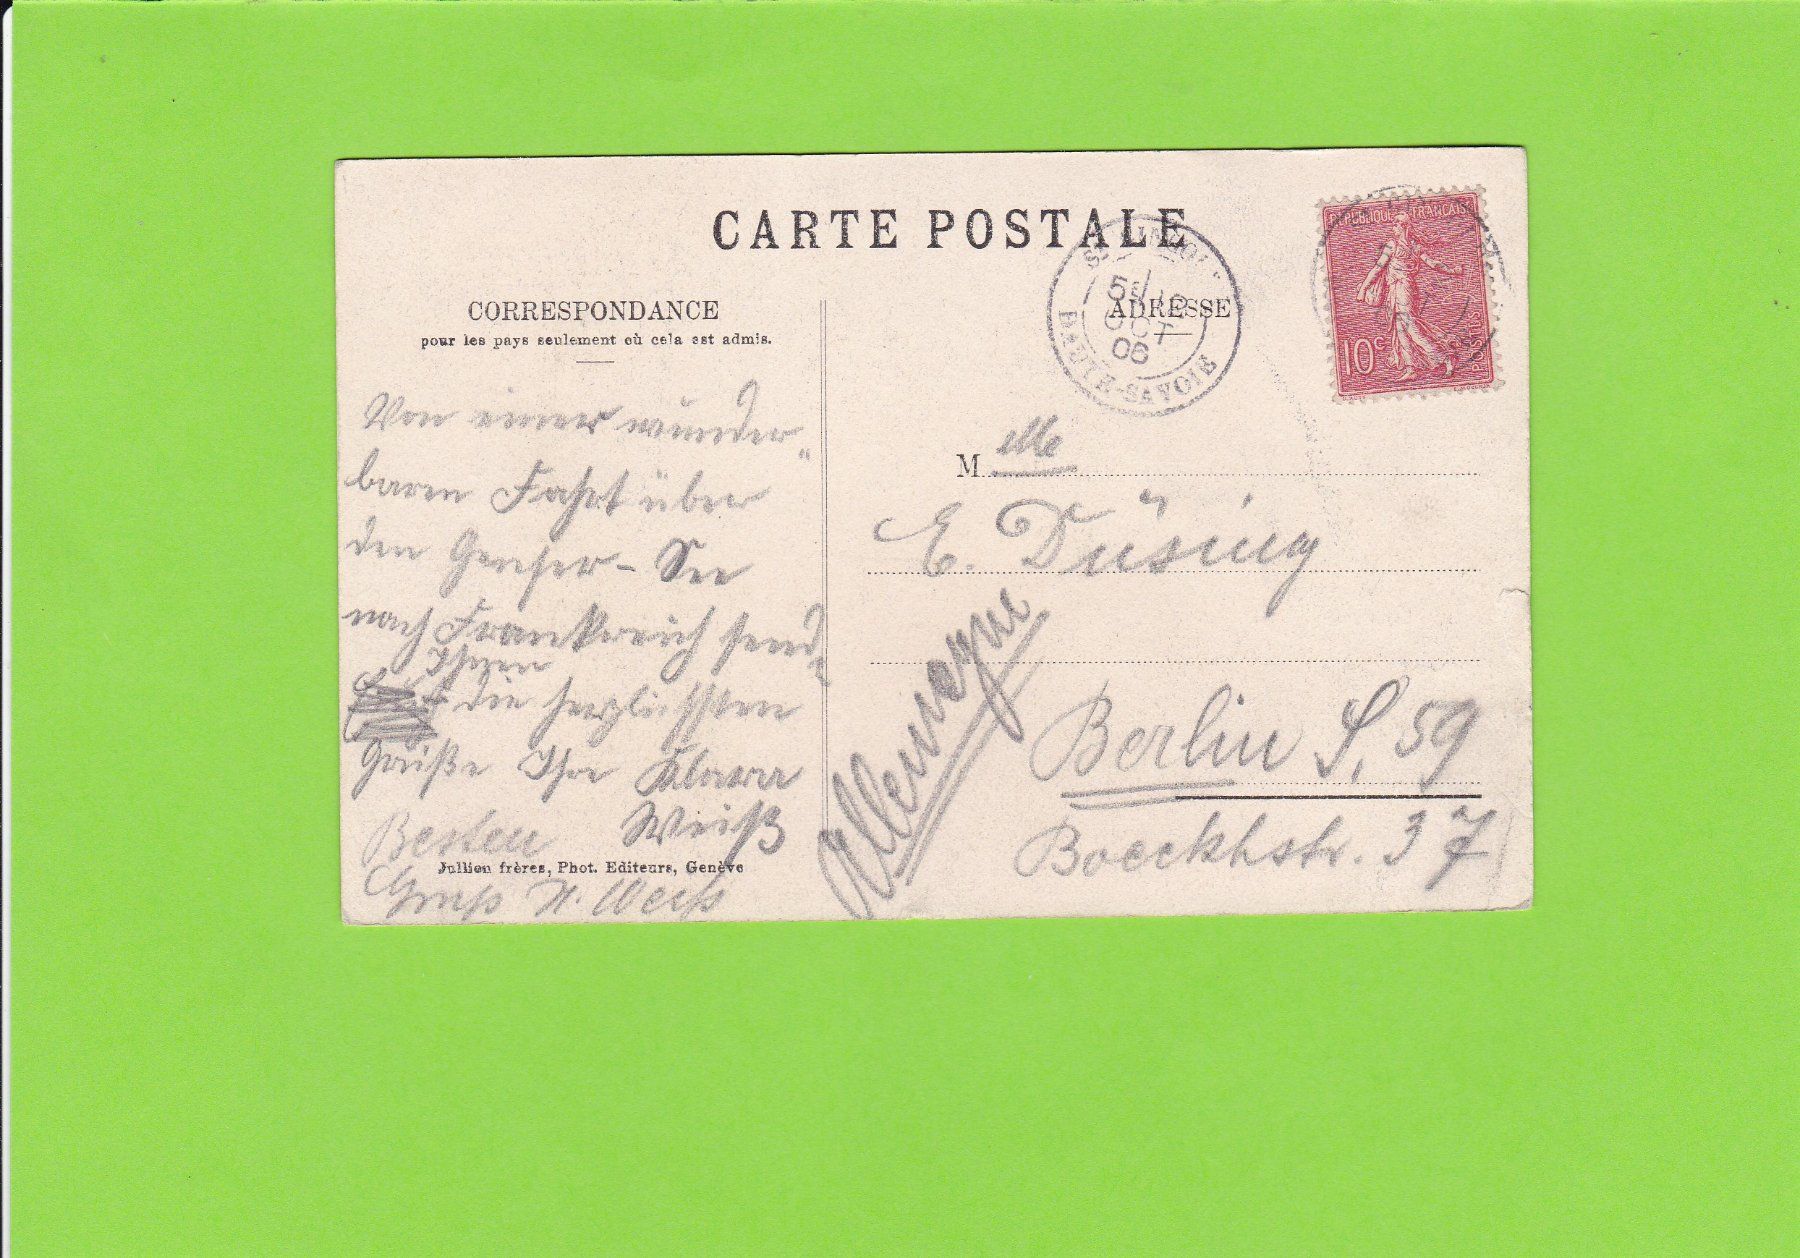 CARTE POSTALE
CORRESPONDANCE
pour les pays seulement où cela est admis.
Von einer wunder-
baren Fahrt über
den Genfer-See
nach Frankreich send
Ihnen
die herzlichsten
Grüße Ihre Klara
Weiß
Besten
Jullien frères, Phot. Editeurs, Genève
Gruß H. Weiß
ADRESSE
HAUTE-SAVOIE
OCT
06
RÉPUBLIQUE FRANÇAISE
10c
POSTES
M elle
E. Düsing
Allemagne
Berlin S, 59
Boeckhstr. 37